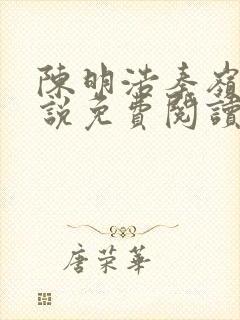 陳明浩秦嶺
說免費閱讀
唐荣華